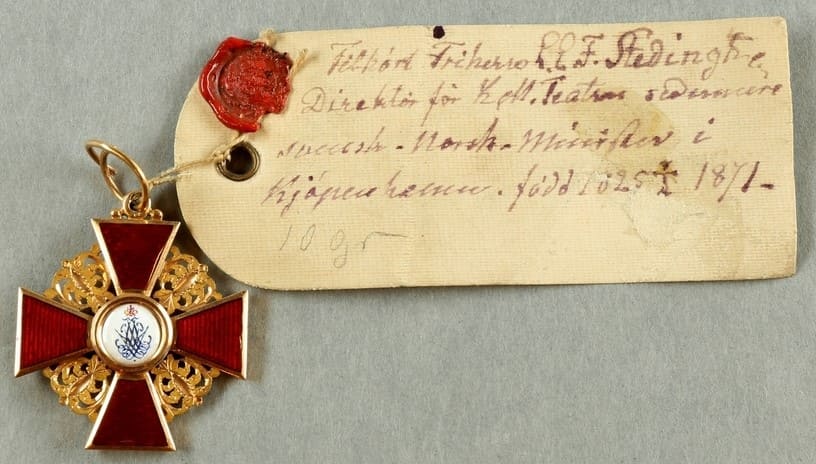 Tillhört Friherre E. E. F. Stedingk,
Direktör för Kgl. Teatern sedermera
svensk-Norsk-Minister i
Kjöpenhamn. född 1825 † 1871-
10 gr